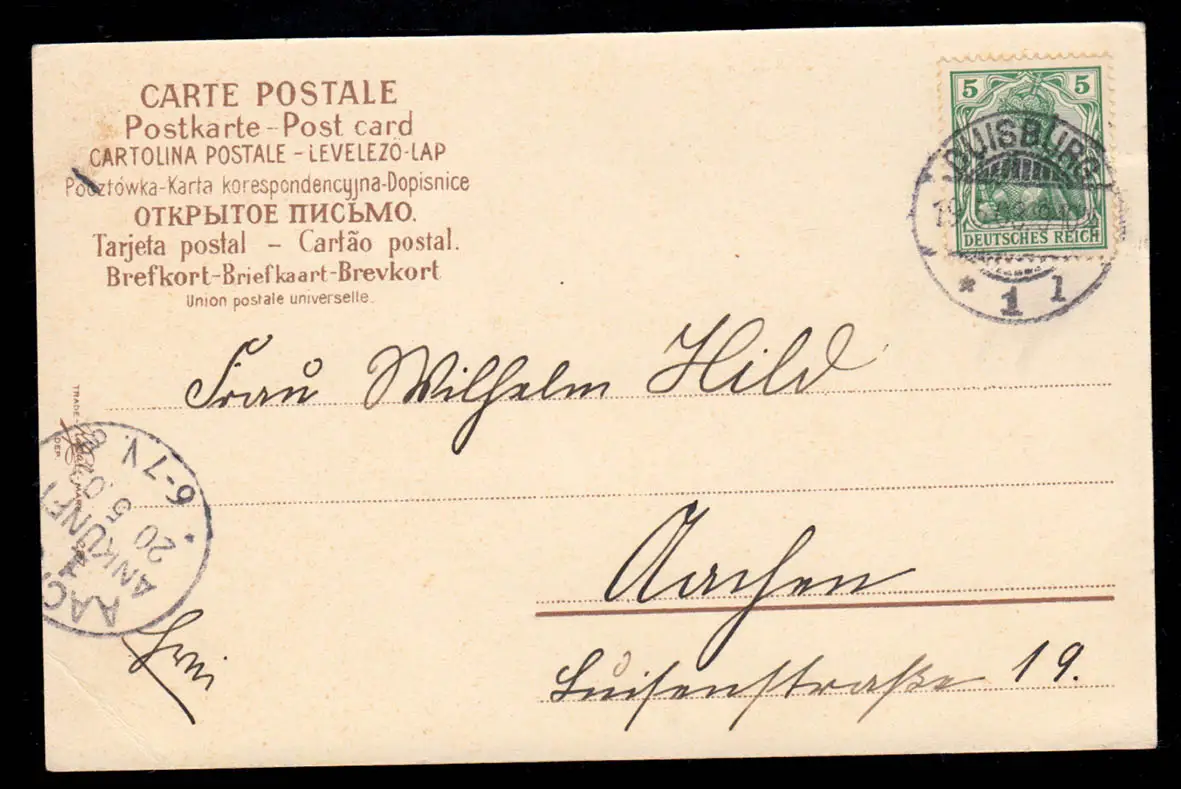 CARTE POSTALE
Postkarte - Post card
CARTOLINA POSTALE - LEVELEZÖ-LAP
Pocztówka-Karta korespondencyjna-Dopisnice
ОТКРЫТОЕ ПИСЬМО.
Tarjeta postal - Cartão postal.
Brefkort-Briefkaart-Brevkort
Union postale universelle.
5 5
DEUTSCHES REICH
DUISBURG
* 1 l
Frau Wilhelm Hild
Aachen
Luisenstraße 19.
TRADE
DEP.
AAC
ANKUNFT
20 5 03
6-7 V.
Frei